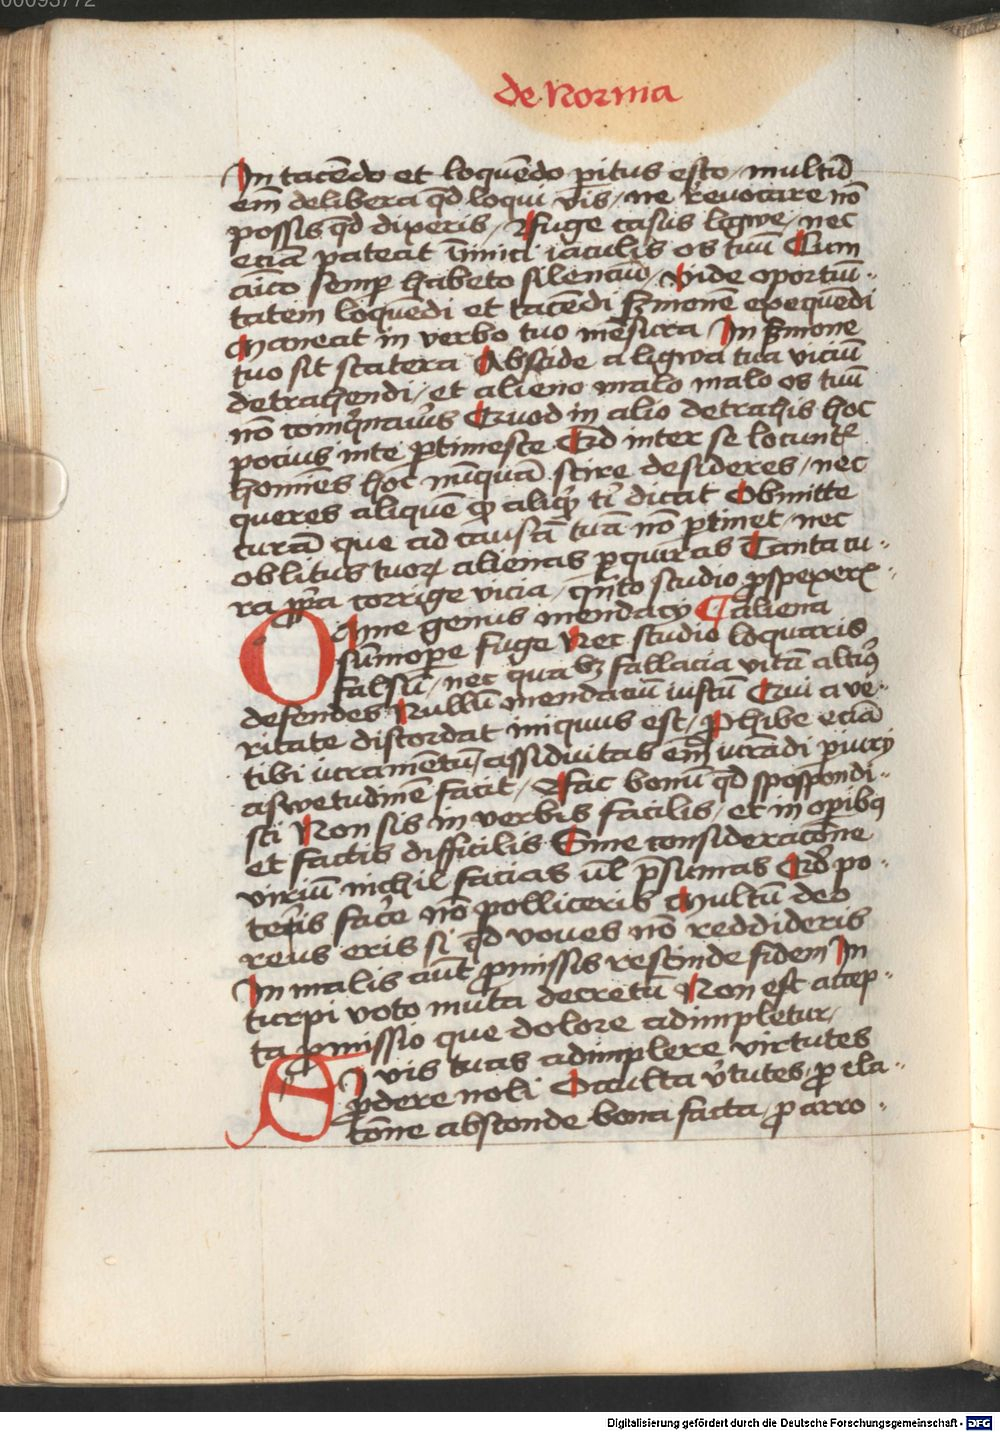 00093772
de Norma
In tacēdo et loquēdo pitus esto / multū
em̄ delibera qd loqui vis / ne reuocare nō
possis qd dixeris / Fuge casus ligwe / nec
eciā pateat inimici iaculis os tuū Cum
aīco semp habeto silenciū / Vide oportuū-
tatem loquēdi et tacēdi sermonē exequēdi
Maneat in verbo tuo mēsura In smone
tuo sit statera Abscide a ligwa tua viciū
detrahendi / et alieno malo malo os tuū
nō coinqnaūis Quod in alio detrahis hoc
pocius in te ptimesce Qd inter se locuntr
homīes hoc nūquā scire desideres / nec
queres aliquē qd aliqs ti dicat Obmitte
curā que ad causā tuā nō ptinet / nec
oblitus tuor alienas pquiras Tanta cu-
ra pp̄a corrige vicia / qnto studio pspexeris
Omne genus mendacy aliena
sūmope fuge Nec studio loquaris
falsū / nec qua bz fallacia vitā altius
defendes Nullū mendaciū iustū Qui a ve-
ritate discordat iniquus est / phibe eciā
tibi iuramētū / assiduitas em̄ iurādi piurij
aswetudinē facit / Fac bonū qd spospondi-
sti Non sis in verbis facilis / et in opibus
et factis difficilis Sine consideracōne
viriū nichil facias ul p̄sumas Qd po-
teris face nō polliceris Multū deo
reus eris si qd voues nō reddideris
In malis aūt pmissis rescinde fidem In
turpi voto muta decretū Non est accep-
ta pmissio que dolore adimpletur /
Si vis tuas adimplere virtutes
pdere noli Occulta vtutes / p ela-
cōne absconde bona facta / p arro-
Digitalisierung gefördert durch die Deutsche Forschungsgemeinschaft - DFG